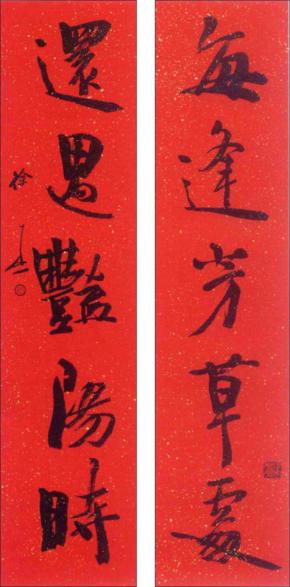 每逢芳草處
還遇豔陽時
徐